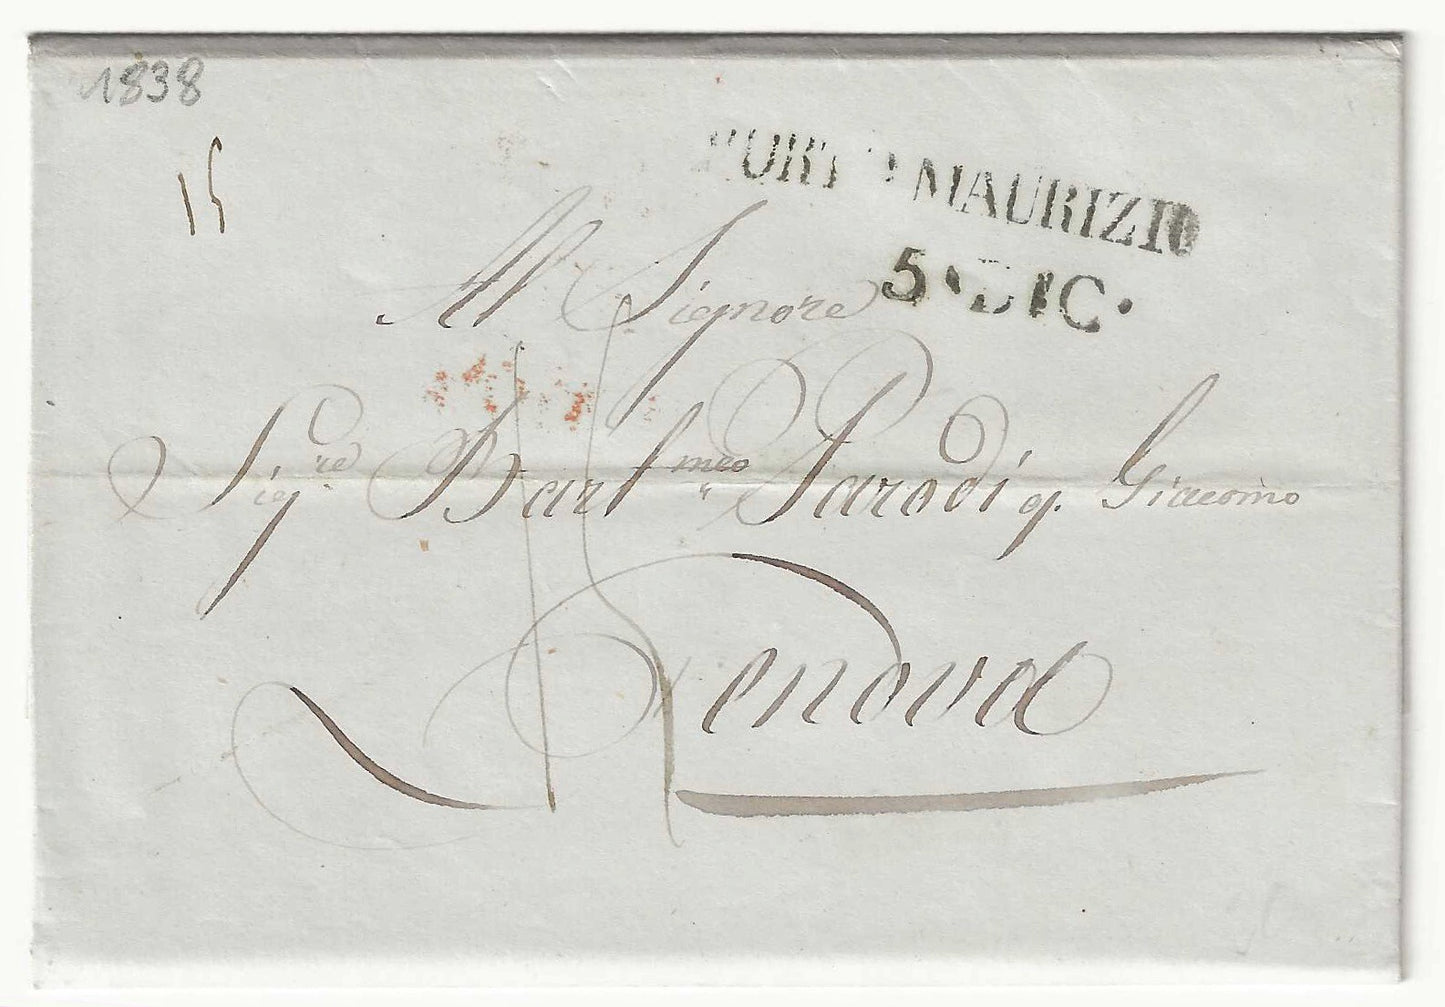 1838
15
PORTO MAURIZIO
5 DIC.
Al Signore
Sig.re Bartmeo Parodi q. Giacomo
Genova